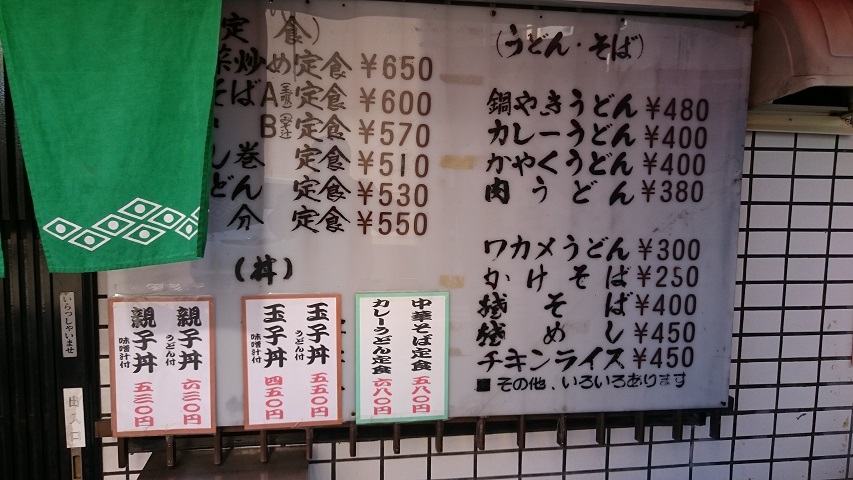 定食)
め定食 ¥650
そばA定食 ¥600
B定食 ¥570
し巻 定食 ¥510
どん 定食 ¥530
分 定食 ¥550
(丼)
(うどん・そば)
鍋やきうどん ¥480
カレーうどん ¥400
かやくうどん ¥400
肉うどん ¥380
ワカメうどん ¥300
かけそば ¥250
そば ¥400
めし ¥450
チキンライス ¥450
■その他、いろいろあります
親子丼 うどん付 六三〇円
親子丼 味噌汁付 五三〇円
玉子丼 うどん付 五五〇円
玉子丼 味噌汁付 四五〇円
中華そば定食 五八〇円
カレーうどん定食 六八〇円
いらっしゃいませ
出入口